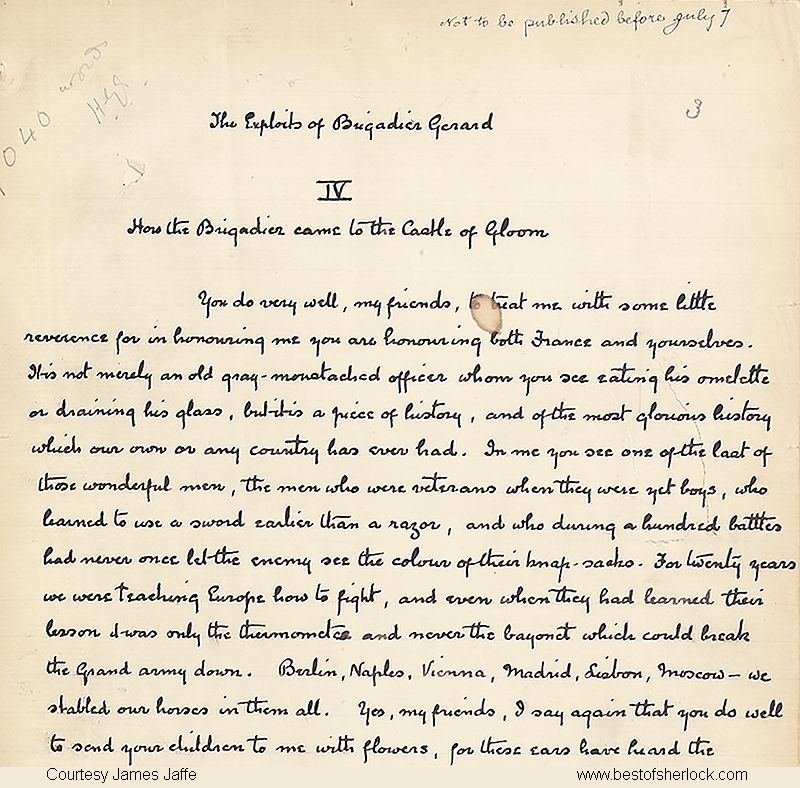 Not to be published before July 7
040 words
3
The Exploits of Brigadier Gerard
IV
How the Brigadier came to the Castle of Gloom
You do very well, my friends, to treat me with some little
reverence for in honouring me you are honouring both France and yourselves.
It is not merely an old gray-moustached officer whom you see eating his omelette
or draining his glass, but it is a piece of history, and of the most glorious history
which our own or any country has ever had. In me you see one of the last of
those wonderful men, the men who were veterans when they were yet boys, who
learned to use a sword earlier than a razor, and who during a hundred battles
had never once let the enemy see the colour of their knap-sacks. For twenty years
we were teaching Europe how to fight, and even when they had learned their
lesson it was only the thermometer and never the bayonet which could break
the Grand army down. Berlin, Naples, Vienna, Madrid, Lisbon, Moscow – we
stabled our horses in them all. Yes, my friends, I say again that you do well
to send your children to me with flowers, for these ears have heard the
Courtesy James Jaffe
www.bestofsherlock.com